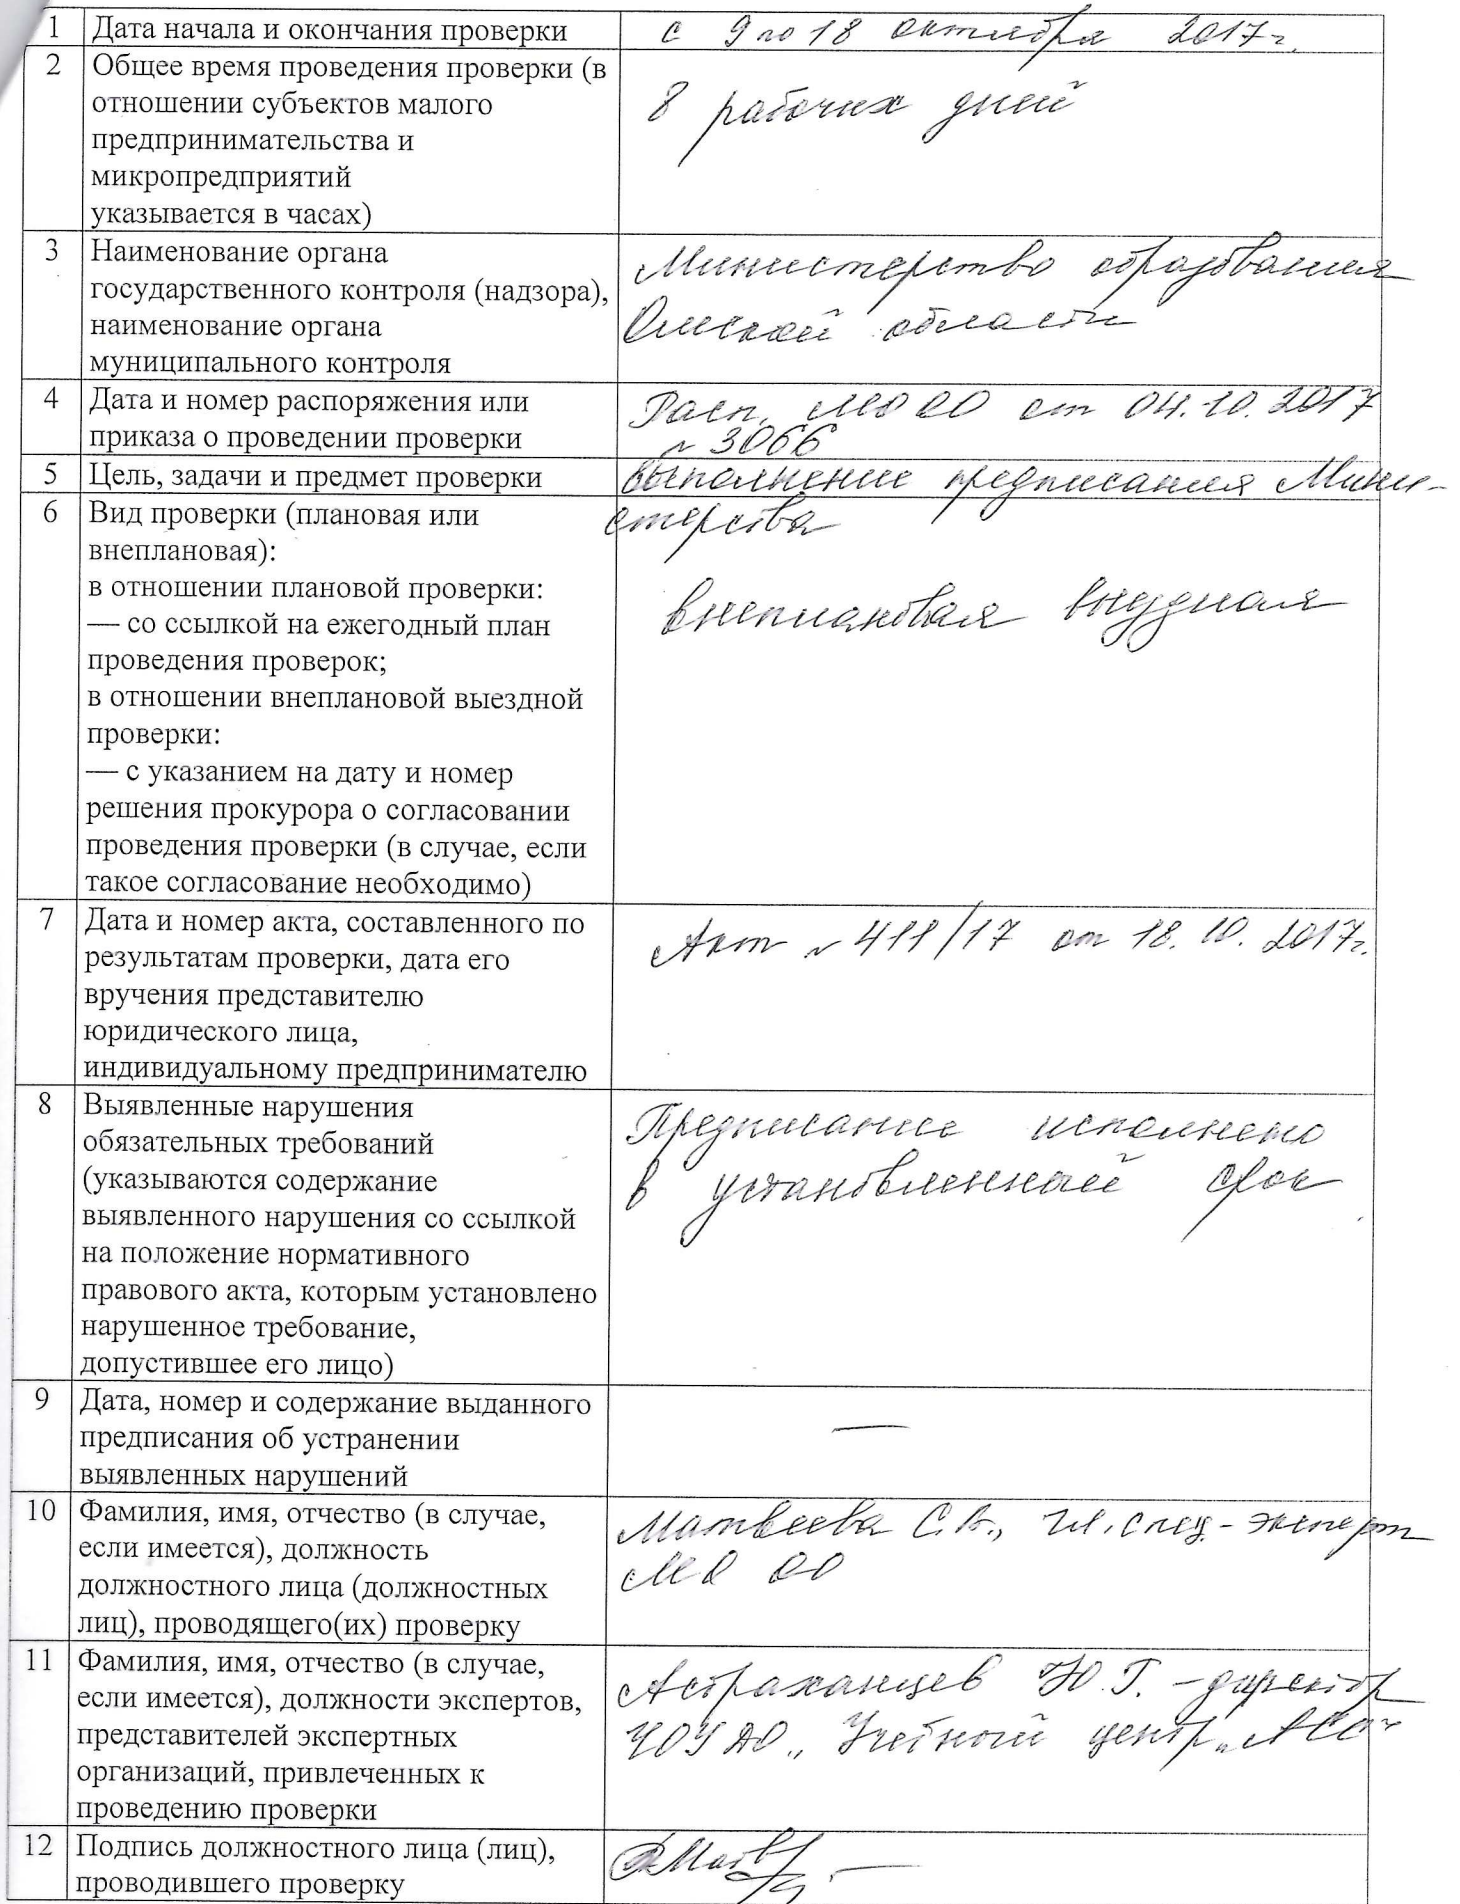 1 Дата начала и окончания проверки с 9 по 18 октября 2017г.
2 Общее время проведения проверки (в
отношении субъектов малого
предпринимательства и
микропредприятий
указывается в часах)
8 рабочих дней
3 Наименование органа
государственного контроля (надзора),
наименование органа
муниципального контроля
Министерство образования
Омской области
4 Дата и номер распоряжения или
приказа о проведении проверки
Расп. МО ОО от 04.10.2017
№ 3066
5 Цель, задачи и предмет проверки
выполнение предписания Мини-
стерства
6 Вид проверки (плановая или
внеплановая):
в отношении плановой проверки:
— со ссылкой на ежегодный план
проведения проверок;
в отношении внеплановой выездной
проверки:
— с указанием на дату и номер
решения прокурора о согласовании
проведения проверки (в случае, если
такое согласование необходимо)
внеплановая выездная
7 Дата и номер акта, составленного по
результатам проверки, дата его
вручения представителю
юридического лица,
индивидуальному предпринимателю
Акт № 411/17 от 18.10.2017г.
8 Выявленные нарушения
обязательных требований
(указываются содержание
выявленного нарушения со ссылкой
на положение нормативного
правового акта, которым установлено
нарушенное требование,
допустившее его лицо)
Предписание исполнено
в установленный срок
9 Дата, номер и содержание выданного
предписания об устранении
выявленных нарушений
—
10 Фамилия, имя, отчество (в случае,
если имеется), должность
должностного лица (должностных
лиц), проводящего(их) проверку
Матвеева С.В., гл. спец.-эксперт
МО ОО
11 Фамилия, имя, отчество (в случае,
если имеется), должности экспертов,
представителей экспертных
организаций, привлеченных к
проведению проверки
Астраханцев Ю.Г. - директор
ЧОУ ДО „Учебный центр „
12 Подпись должностного лица (лиц),
проводившего проверку